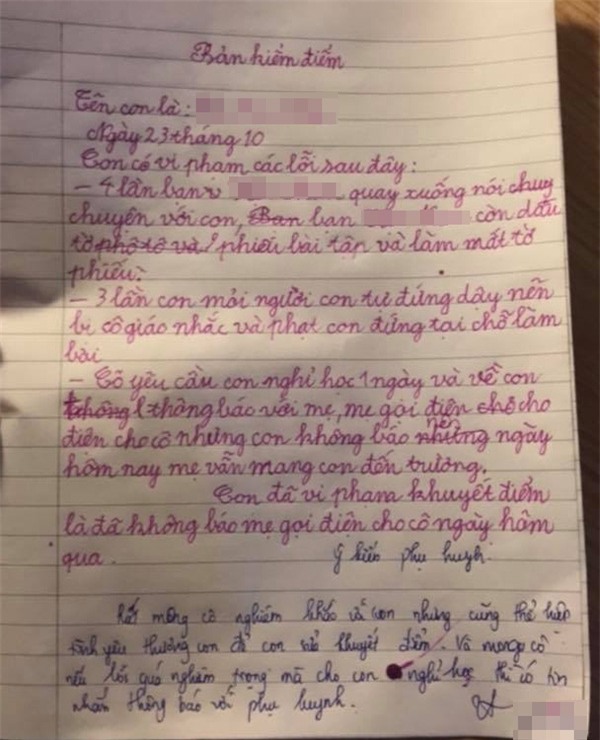 Bản kiểm điểm
Tên con là:
Ngày 23 tháng 10
Con có vi phạm các lỗi sau đây:
- 4 lần bạn quay xuống nói chuy
chuyện với con, Bạn bạn còn dấu
tờ phô tô và phiếu bài tập và làm mất tờ
phiếu.
- 3 lần con mỏi người con tự đứng dậy nên
bị cô giáo nhắc và phạt con đứng tại chỗ làm
bài
- Cô yêu cầu con nghỉ học 1 ngày và về con
không thông báo với mẹ, mẹ gọi điện chô cho
điện cho cô nhưng con không báo những nên ngày
hôm nay mẹ vẫn mang con đến trường.
Con đã vi phạm khuyết điểm
là đã không báo mẹ gọi điện cho cô ngày hôm
qua.
Ý kiến phụ huynh.
Rất mong cô nghiêm khắc với con nhưng cũng thể hiện
tình yêu thương con để con sửa khuyết điểm. Và mong cô
nếu lỗi quá nghiêm trọng mà cho con nghỉ học thì có tin
nhắn thông báo với phụ huynh.